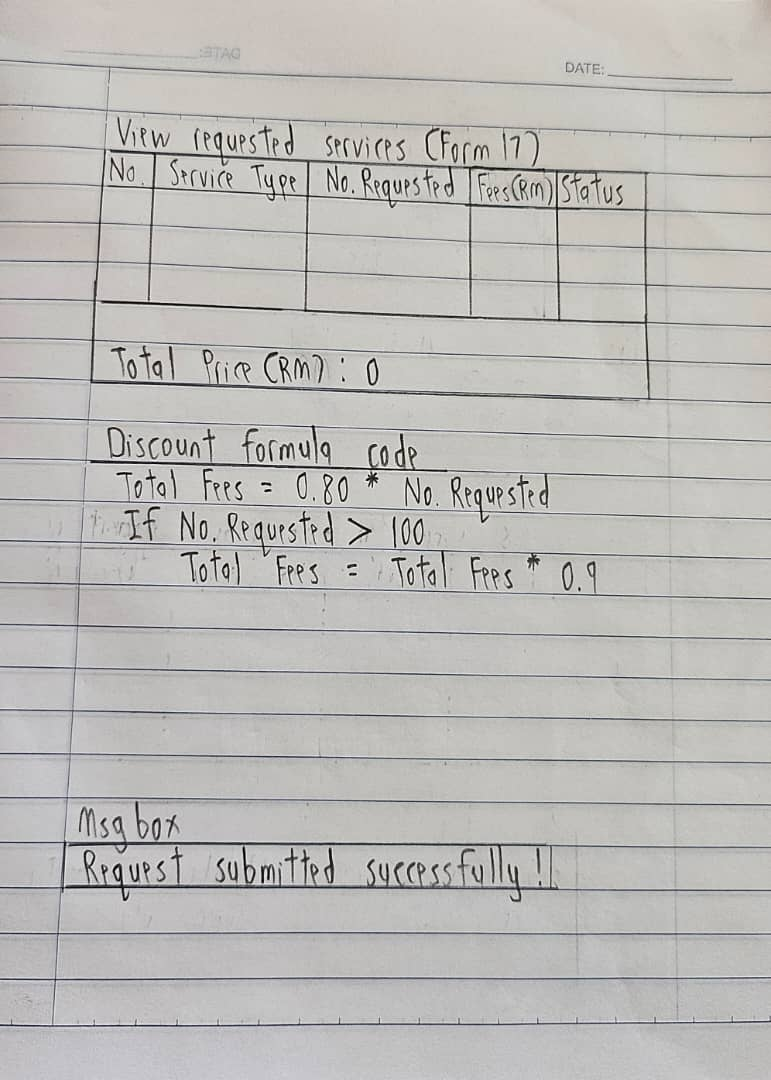 DATE:
DATE:
View requested services (Form 17)
No. Service Type No. Requested Fees(RM) Status
Total Price (RM) : 0
Discount formula code
Total Fees = 0.80 * No. Requested
If No. Requested > 100
Total Fees = Total Fees * 0.9
Msg box
Request submitted successfully!